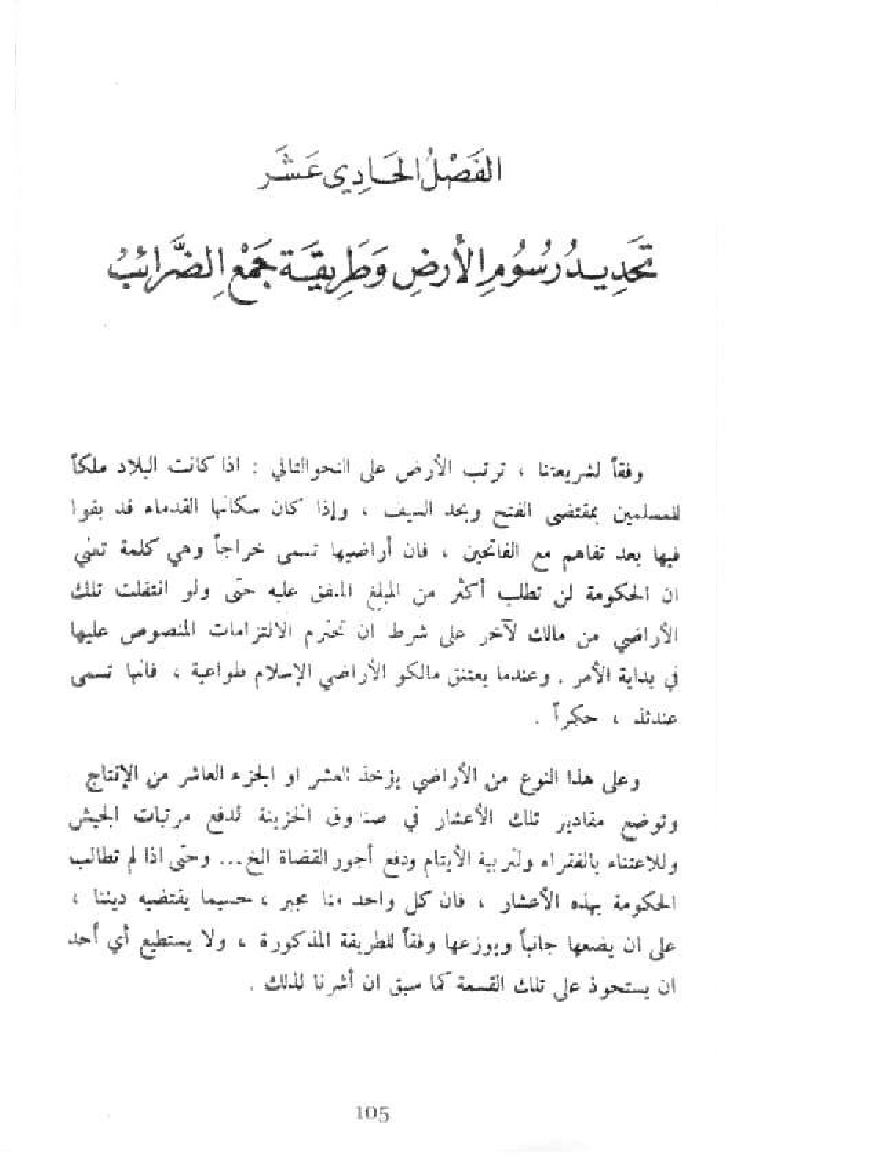 الفَصْلُ الحَادِي عَشَر
تَحْدِيدُ رُسُومِ الأَرضِ وَطَرِيقَة جَمْعِ الضَّرَائبُ
وفقاً لشريعتنا ، ترتب الأرض على النحو التالي : اذا كانت البلاد ملكاً
للمسلمين بمقتضى الفتح وبحد السيف ، وإذا كان سكانها القدماء قد بقوا
فيها بعد تفاهم مع الفاتحين ، فان أراضيها تسمى خراجاً وهي كلمة تعني
ان الحكومة لن تطلب أكثر من المبلغ المتفق عليه حتى ولو انتقلت تلك
الأراضي من مالك لآخر على شرط ان تحترم الالتزامات المنصوص عليها
في بداية الأمر . وعندما يعتنق مالكو الأراضي الإسلام طواعية ، فانها تسمى
عندئذ ، حكراً .
وعلى هذا النوع من الأراضي يؤخذ العشر او الجزء العاشر من الإنتاج
وتوضع مقادير تلك الأعشار في صندوق الخزينة لدفع مرتبات الجيش
وللاعتناء بالفقراء ولتربية الأيتام ودفع أجور القضاة الخ... وحتى اذا لم تطالب
الحكومة بهذه الأعشار ، فان كل واحد منا مجبر ، حسبما يقتضيه ديننا ،
على ان يضعها جانباً ويوزعها وفقاً للطريقة المذكورة ، ولا يستطيع أي أحد
ان يستحوذ على تلك القسمة كما سبق ان أشرنا لذلك .
105